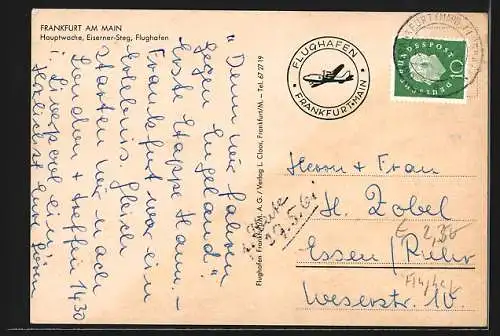 FRANKFURT AM MAIN
Hauptwache, Eiserner-Steg, Flughafen
"Denn wir fahren
gegen Engeland!"
Erste Etappe Hann. -
Frankfurt war ein
Erlebnis. Gleich
starten wir nach
London + treffen 1430
i. Liverpool ein.
Herzlichst Eure
Flughafen Frankfurt/M. A.G. / Verlag L. Claas, Frankfurt/M. – Tel. 67 27 19
FLUGHAFEN
FRANKFURT-MAIN
DEUTSCHE BUNDESPOST
10
27.5.61
Herrn + Frau
H. Zobel
Essen / Ruhr
Weserstr. 10.